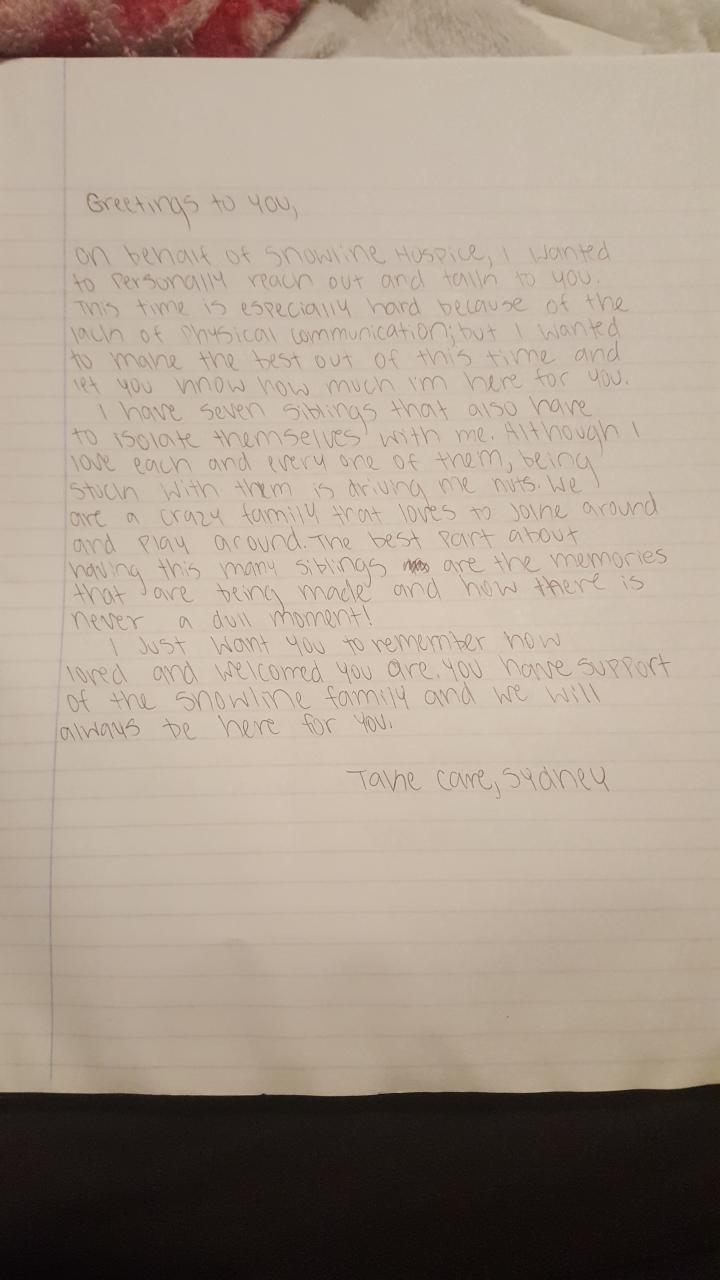 Greetings to you,
on behalf of Snowline Hospice, I wanted
to personally reach out and talk to you.
This time is especially hard because of the
lack of physical communication; but I wanted
to make the best out of this time and
let you know how much i'm here for you.
I have seven siblings that also have
to isolate themselves with me. Although I
love each and every one of them, being
stuck with them is driving me nuts. We
are a crazy family that loves to joke around
and play around. The best part about
having this many siblings are the memories
that are being made and how there is
never a dull moment!
I just want you to remember how
loved and welcomed you are. you have support
of the snowline family and we will
always be here for you.
Take care, Sydney